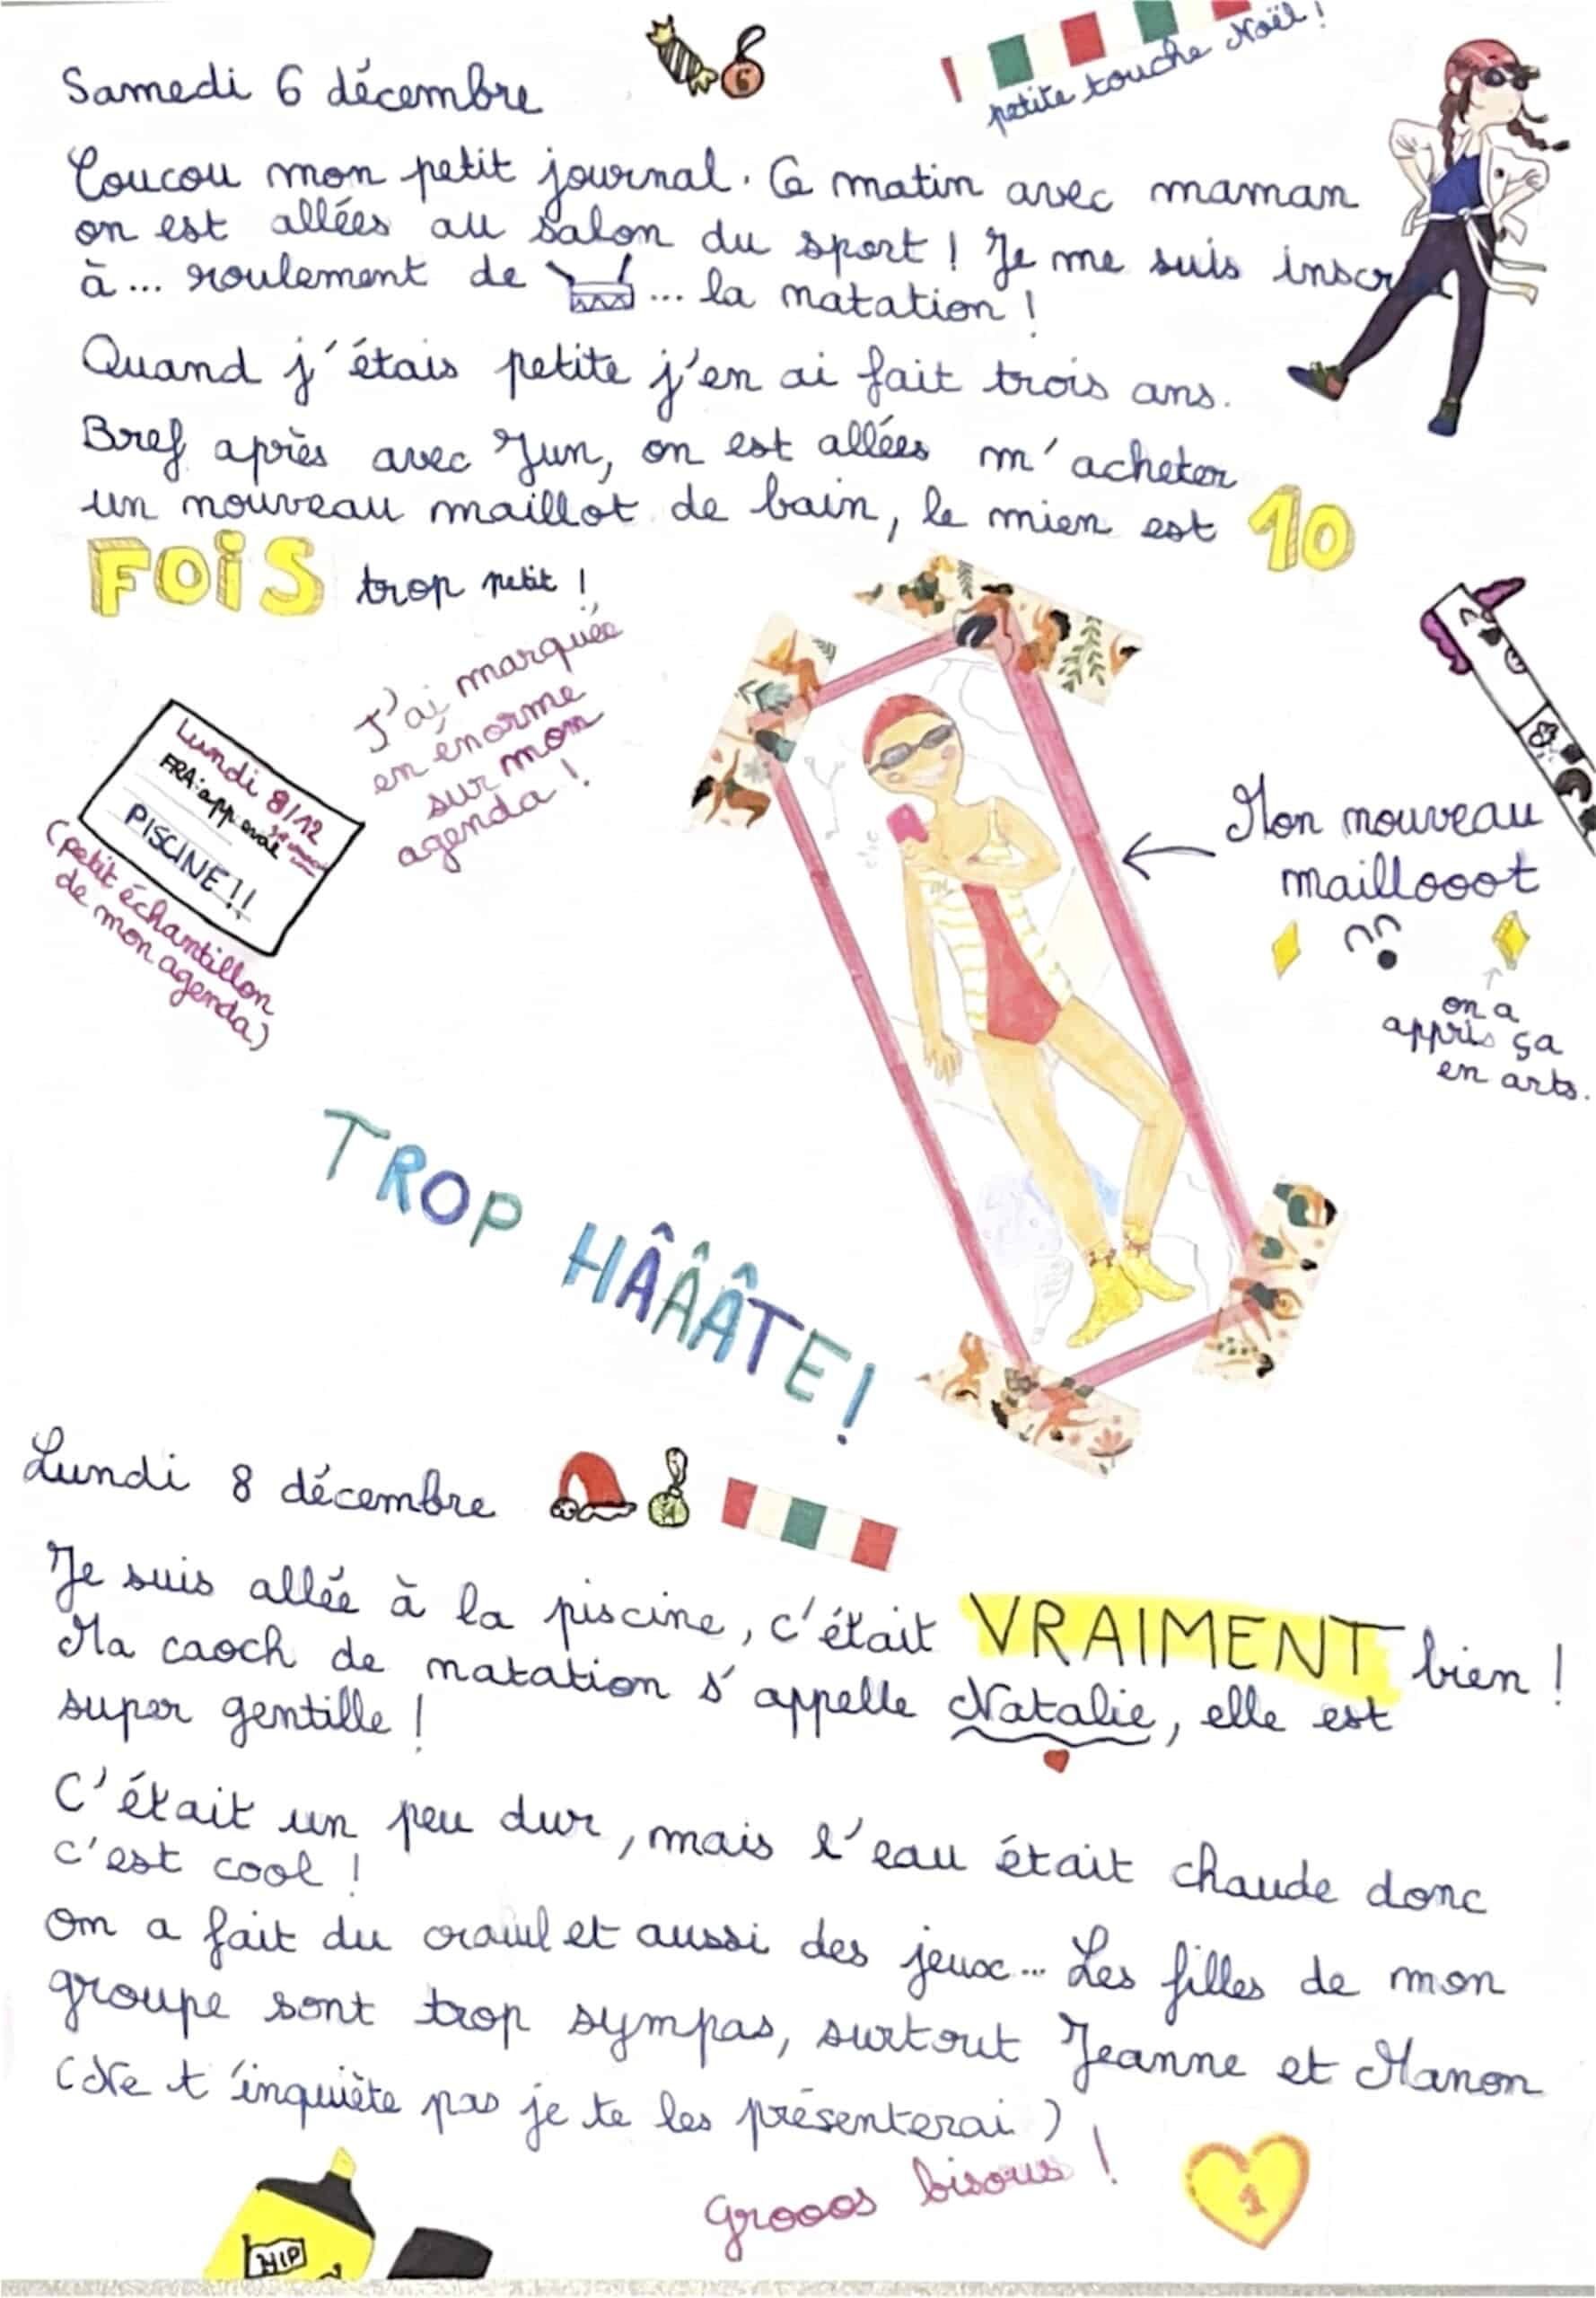 Samedi 6 décembre
6
petite touche Noël !
Coucou mon petit journal. Ce matin avec maman
on est allées au salon du sport ! Je me suis inscr
à... roulement de ... la natation !
Quand j'étais petite j'en ai fait trois ans.
Bref après avec Jun, on est allées m'acheter
un nouveau maillot de bain, le mien est 10
FOiS trop petit !
J'ai marquée
en énorme
sur mon
agenda !
Lundi 8/12
FRA: app. eval
PISCINE !!
(petit échantillon
de mon agenda)
Mon nouveau
maillooot
on a
appris ça
en arts.
TROP HÂÂÂTE !
Lundi 8 décembre
Je suis allée à la piscine, c'était VRAIMENT bien !
Ma caoch de natation s'appelle Natalie, elle est
super gentille !
C'était un peu dur, mais l'eau était chaude donc
c'est cool !
On a fait du crawl et aussi des jeux... Les filles de mon
groupe sont trop sympas, surtout Jeanne et Manon
(Ne t'inquiète pas je te les présenterai)
Grooos bisous !
1
HIP